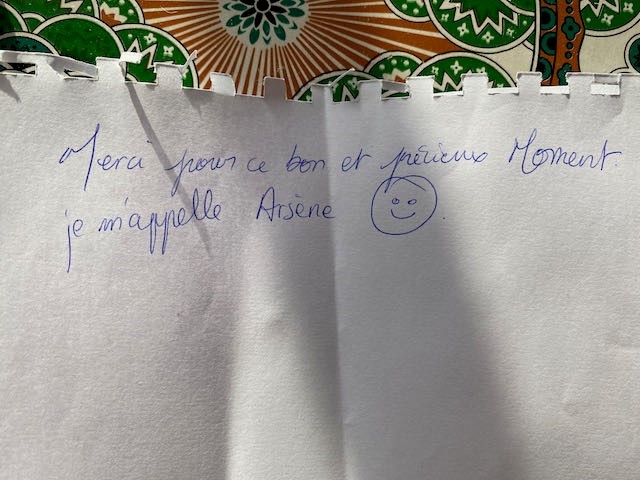 Merci pour ce bon et précieux Moment.
je m'appelle Arsène